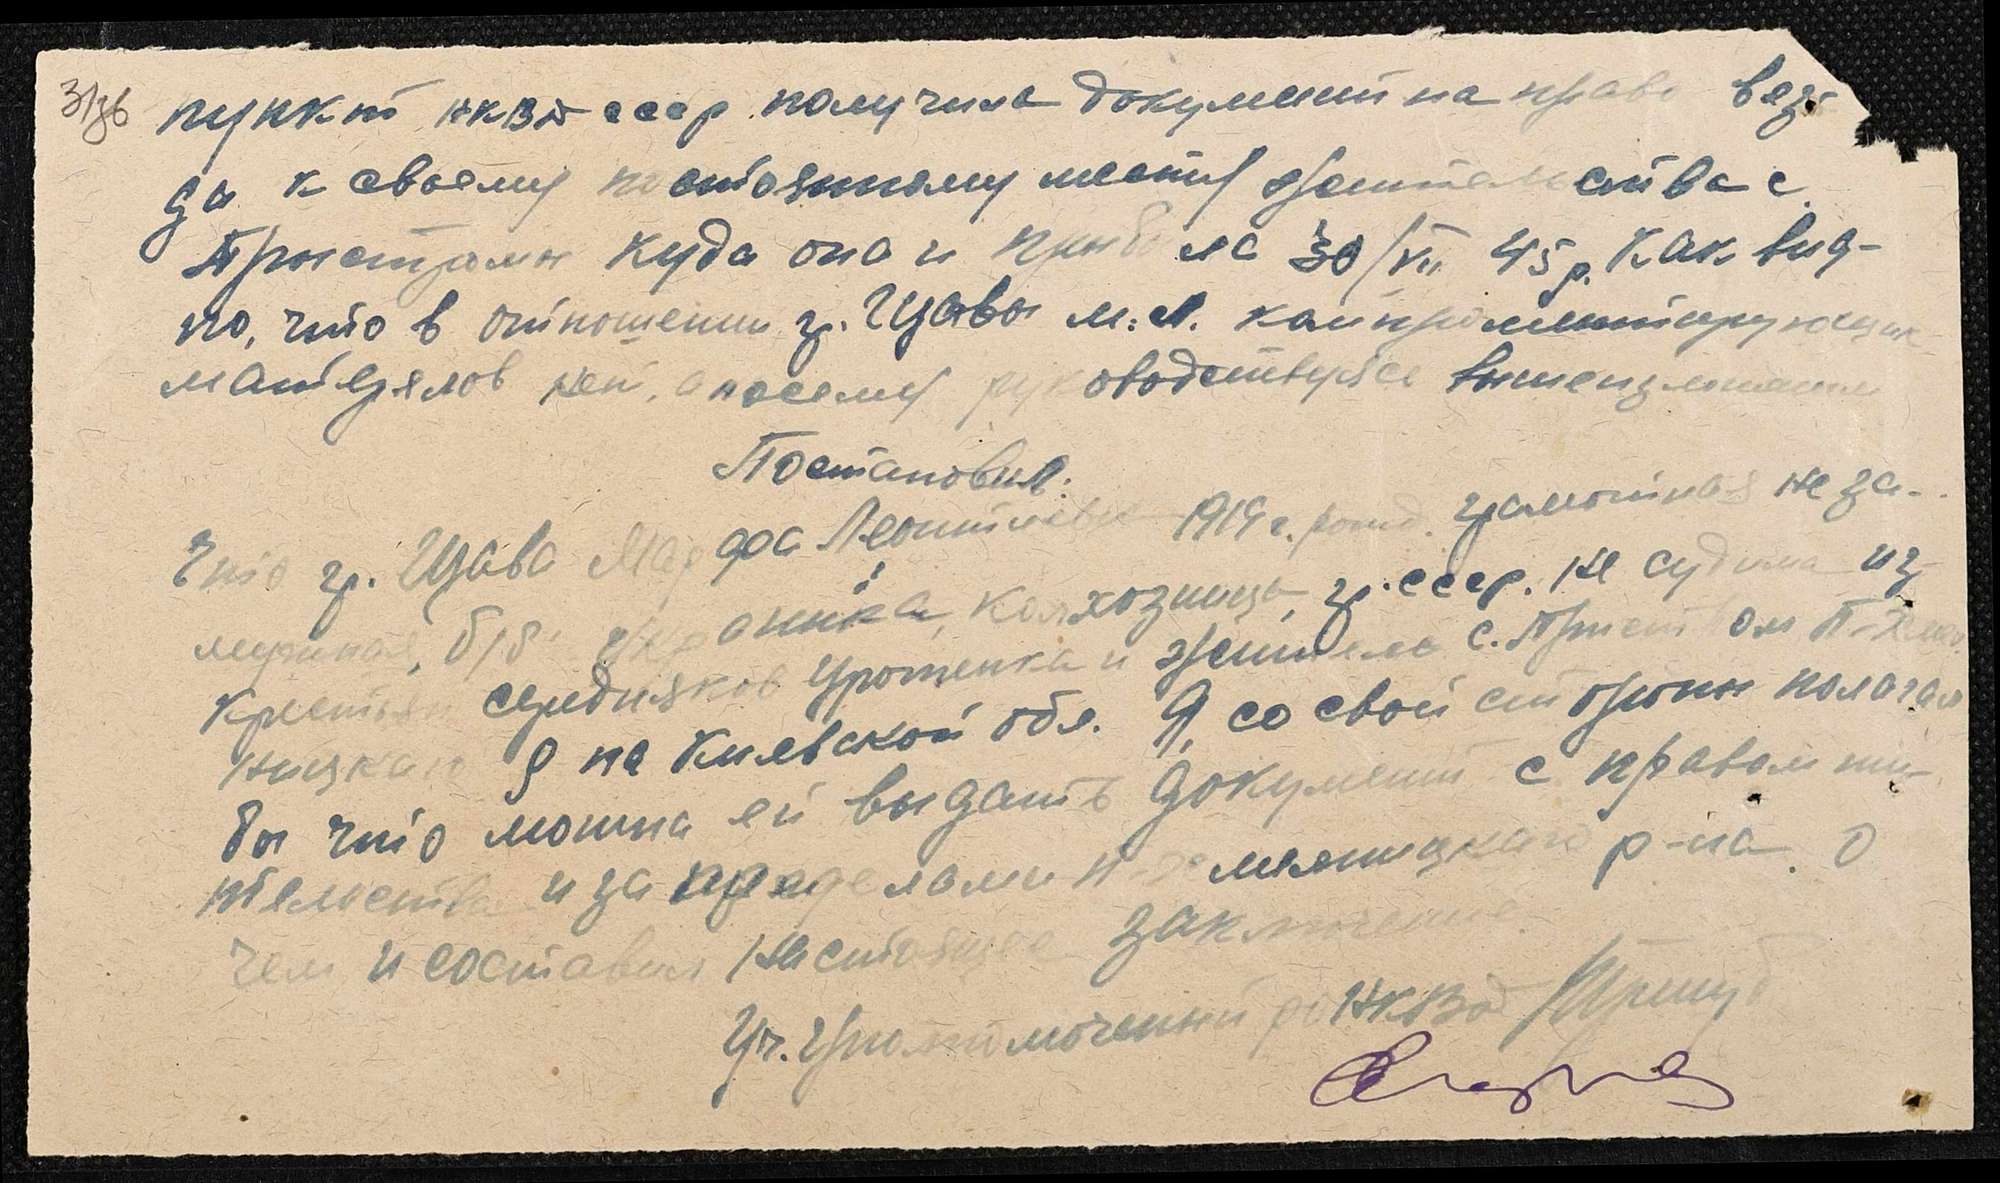 3/36
пункт НКВД СССР получила документ на право везз-
да к своему постоянному месту жительства с.
Пристромы куда она и прибыла 30/VII 45 р. Как вид-
но, что в отношении гр. Щавы М. Л. компрометирующих
матерялов нет, а посему руководствуясь вышеизложеним
Постановил:
Что гр. Щава Марфа Леонтиевна 1919 г. рожд. грамотная не за-
мужная, б/п украинка, колхозница, гр. СССР. не судима из
крестьян середняков урошенка и жителька с. Пристром П-Хмель
ницкаго р-на Киевской обл. Я, со свой стороны полагал
бы чтоможна ей выдать документ с правом жи-
тельства и за пределами П-Хмельницкаго р-на. О
чем и составил настоящее заключение.
Уч. Уполномоченный НКВД